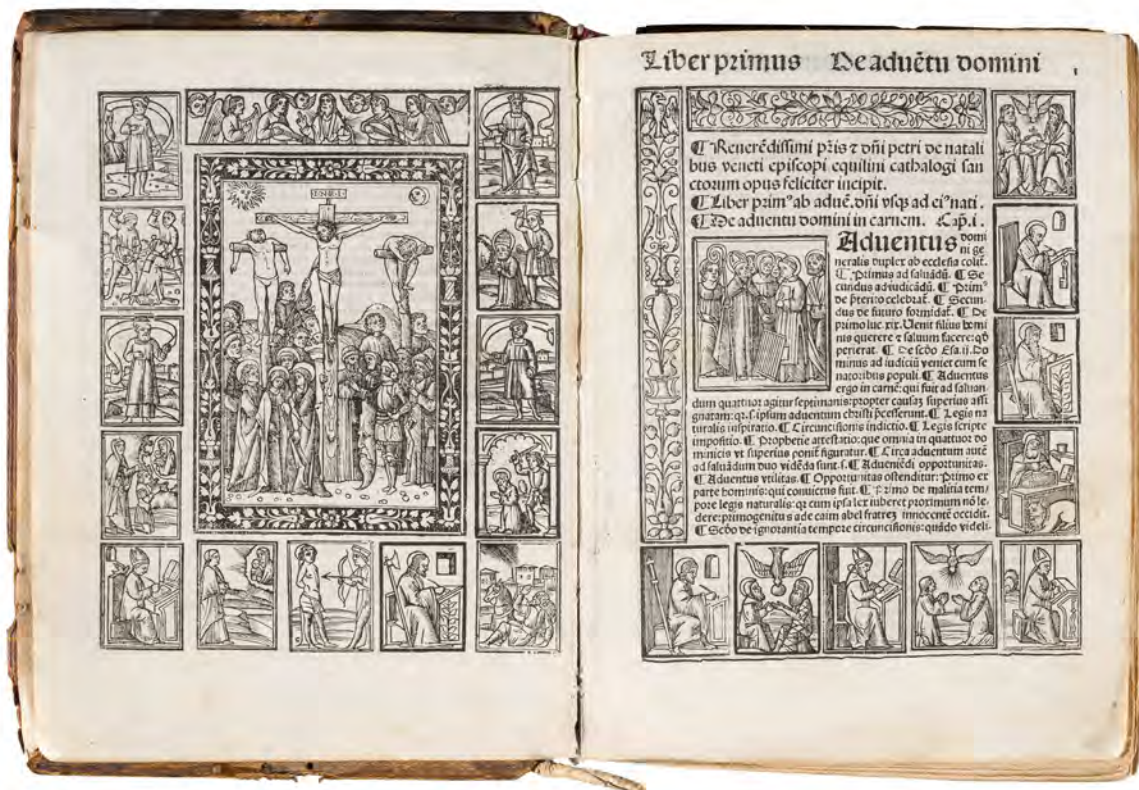 I·N·R·I
Liber primus De aduētu domini
¶ Reuerēdissimi p̄ris ⁊ dn̄i petri de natali
bus veneti episcopi equilini cathalogi san
ctorum opus feliciter incipit.
¶ Liber primꝰ ab aduē. dn̄i vsqꝫ ad eiꝰ nati.
¶ De aduentu domini in carnem. Cap. i.
Aduentus domi
ni ge
neralis duplex ab ecclesia colit̄.
¶ Primus ad saluādū. ¶ Se
cundus ad iudicādū. ¶ Primꝰ
de p̄terito celebrat̄. ¶ Secun
dus de futuro formidat̄. ¶ De
primo luc. xix. Uenit filius homi
nis querere ⁊ saluum facere: qd̄
perierat. ¶ De scd̄o Esa. ij. Do
minus ad iudiciū veniet cum se
natoribus populi. ¶ Aduentus
ergo in carnē: qui fuit ad saluan
dum quattuor agitur septimanis: propter causaȝ superius assi
gnatam: qꝛ. s. ipsum aduentum christi p̄cesserunt. ¶ Legis na
turalis inspiratio. ¶ Circuncisionis indictio. ¶ Legis scripte
impositio. ¶ Prophetie attestatio: que omnia in quattuor do
minicis vt superius ponit̄ figuratur. ¶ Circa aduentum autē
ad saluādum duo vidēda sunt. s. ¶ Adueniēdi opportunitas.
¶ Aduentus vtilitas. ¶ Opportunitas ostenditur: Primo ex
parte hominis: qui conuictus fuit. ¶ Primo de malitia tem
pore legis naturalis: qꝛ cum ipsa lex iuberet proximum nō le
dere: primogenitus ade caim abel fratreȝ innocentē occidit.
¶ Scd̄o de ignorantia tempore circuncisionis: quādo videli